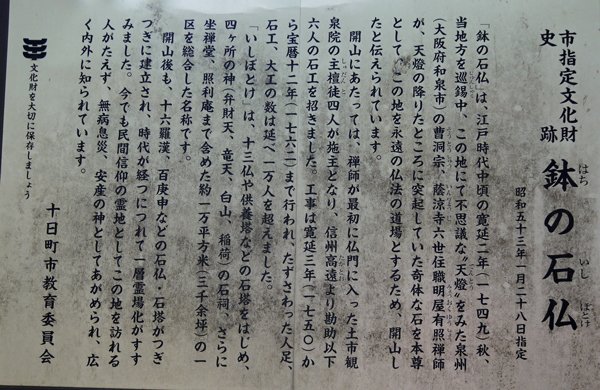 市指定文化財
史跡 鉢の石仏
はち いし ぼとけ
昭和五十三年一月二十八日指定
「鉢の石仏」は、江戸時代中頃の寛延二年(一七四九)秋、
当地方を巡錫中、この地にて不思議な〝天燈〟をみた泉州
(大阪府和泉市)の曹洞宗、蔭涼寺六世住職明屋有照禅師
が、天燈の降りたところに突起していた奇体な石を本尊
として、この地を永遠の仏法の道場とするため、開山し
たと伝えられています。
開山にあたっては、禅師が最初に仏門に入った土市観
泉院の主檀徒四人が施主となり、信州高遠より勘助以下
六人の石工を招きました。工事は寛延三年(一七五〇)か
ら宝暦十二年(一七六二)まで行われ、たずさわった人足、
石工、大工の数は延べ一万人を超えました。
「いしぼとけ」は、十三仏や供養塔などの石塔をはじめ、
四ヶ所の神(弁財天、竜天、白山、稲荷)の石祠、さらに
坐禅堂、照利庵まで含めた約一万平方米(三千余坪)の一
区を総合した名称です。
開山後も、十六羅漢、百庚申などの石仏・石塔がつぎ
つぎに建立され、時代が経つにつれて一層霊場化がすす
みました。今でも民間信仰の霊地としてこの地を訪れる
人がたえず、無病息災、安産の神としてあがめられ、広
く内外に知られています。
十日町市教育委員会
文化財を大切に保存しましょう